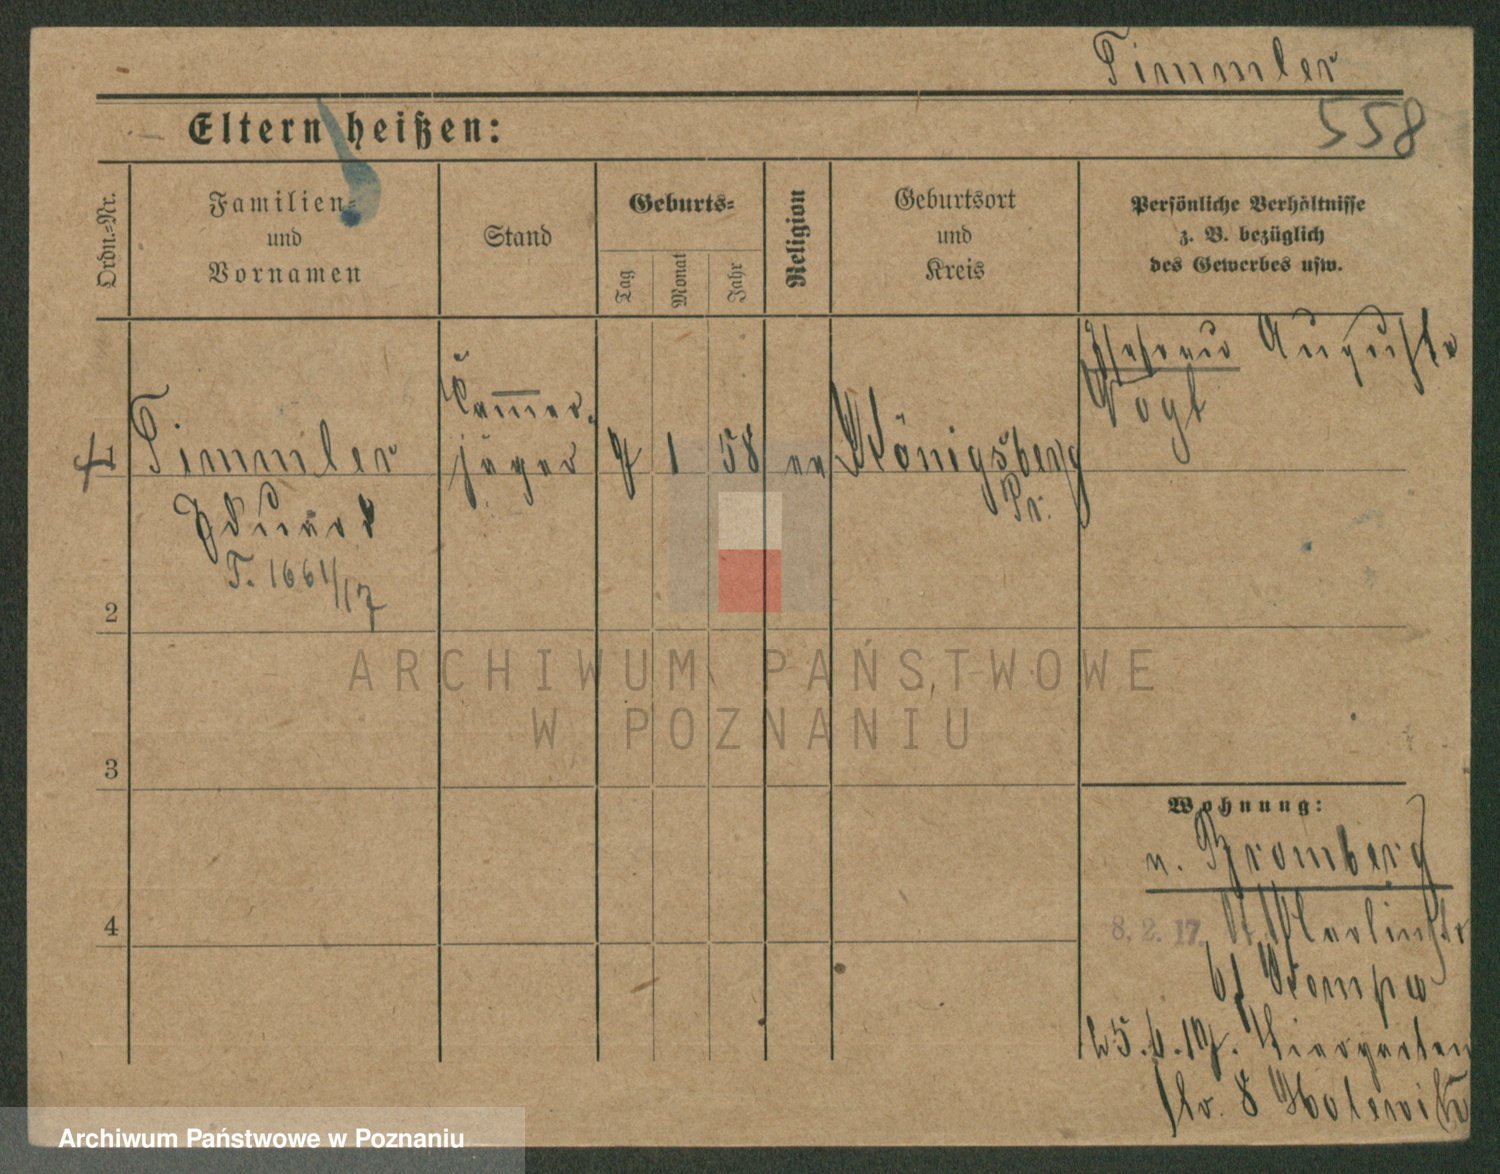 Timmler
558
Eltern heißen:
Ordn.=Nr.
Familien=
und
Vornamen
Stand
Geburts=
Tag
Monat
Jahr
Religion
Geburtsort
und
Kreis
Persönliche Verhältnisse
z. B. bezüglich
des Gewerbes usw.
1
Timmler
Eduard
T. 1661/17
Kammer-
jäger
1
58
ev
Königsberg
Pr.
Ehefrau Auguste
Vogt
2
3
4
Wohnung:
v. Bromberg
8. 2. 17.
25.6.17. Tiergarten
str. 8
ARCHIWUM PAŃSTWOWE
W POZNANIU
Archiwum Państwowe w Poznaniu